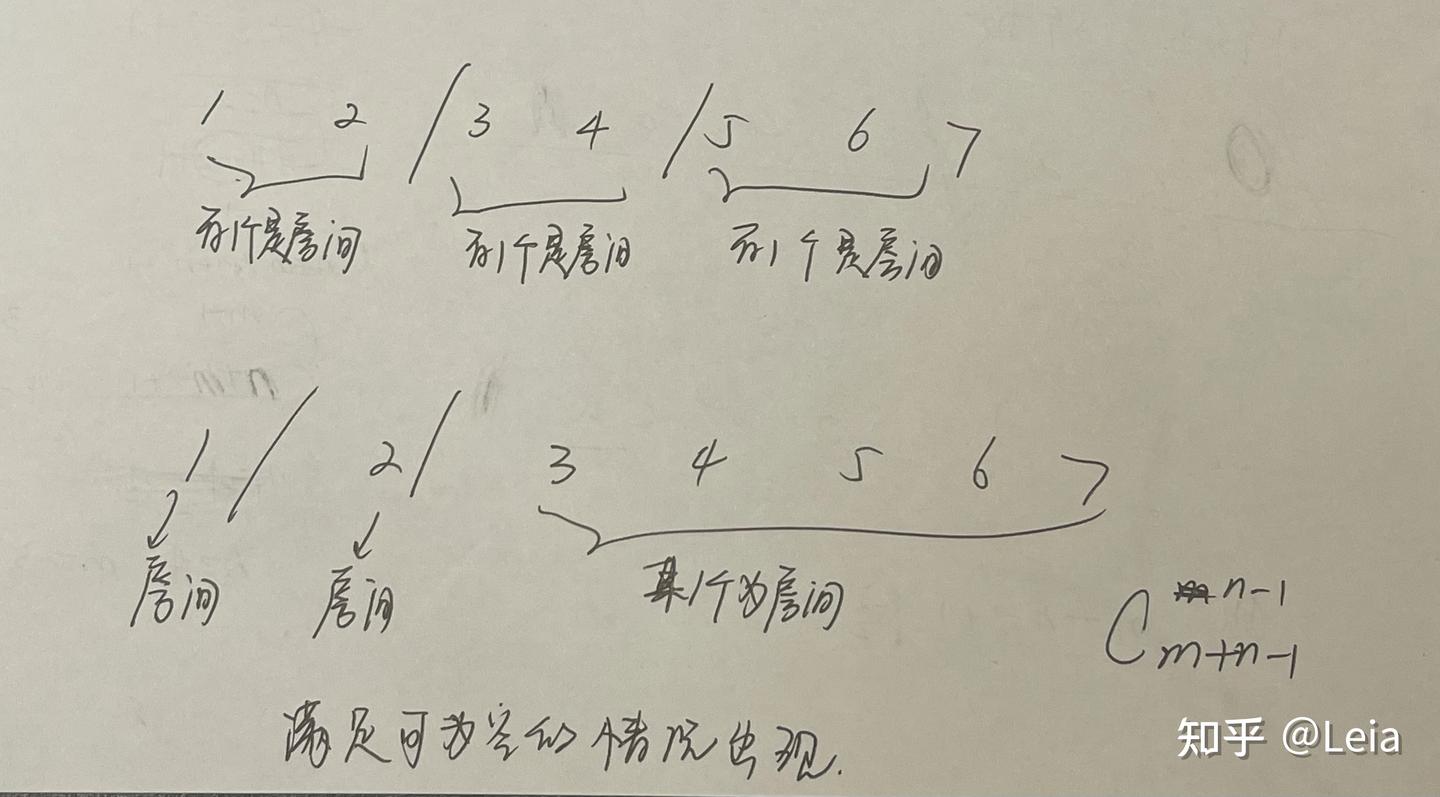 1 2 / 3 4 / 5 6 7
有1个是房间 有1个是房间 有1个是房间
1 / 2 / 3 4 5 6 7
房间 房间 某1个为房间
C n-1 m+n-1
满足可为空的情况出现.
知乎 @Leia